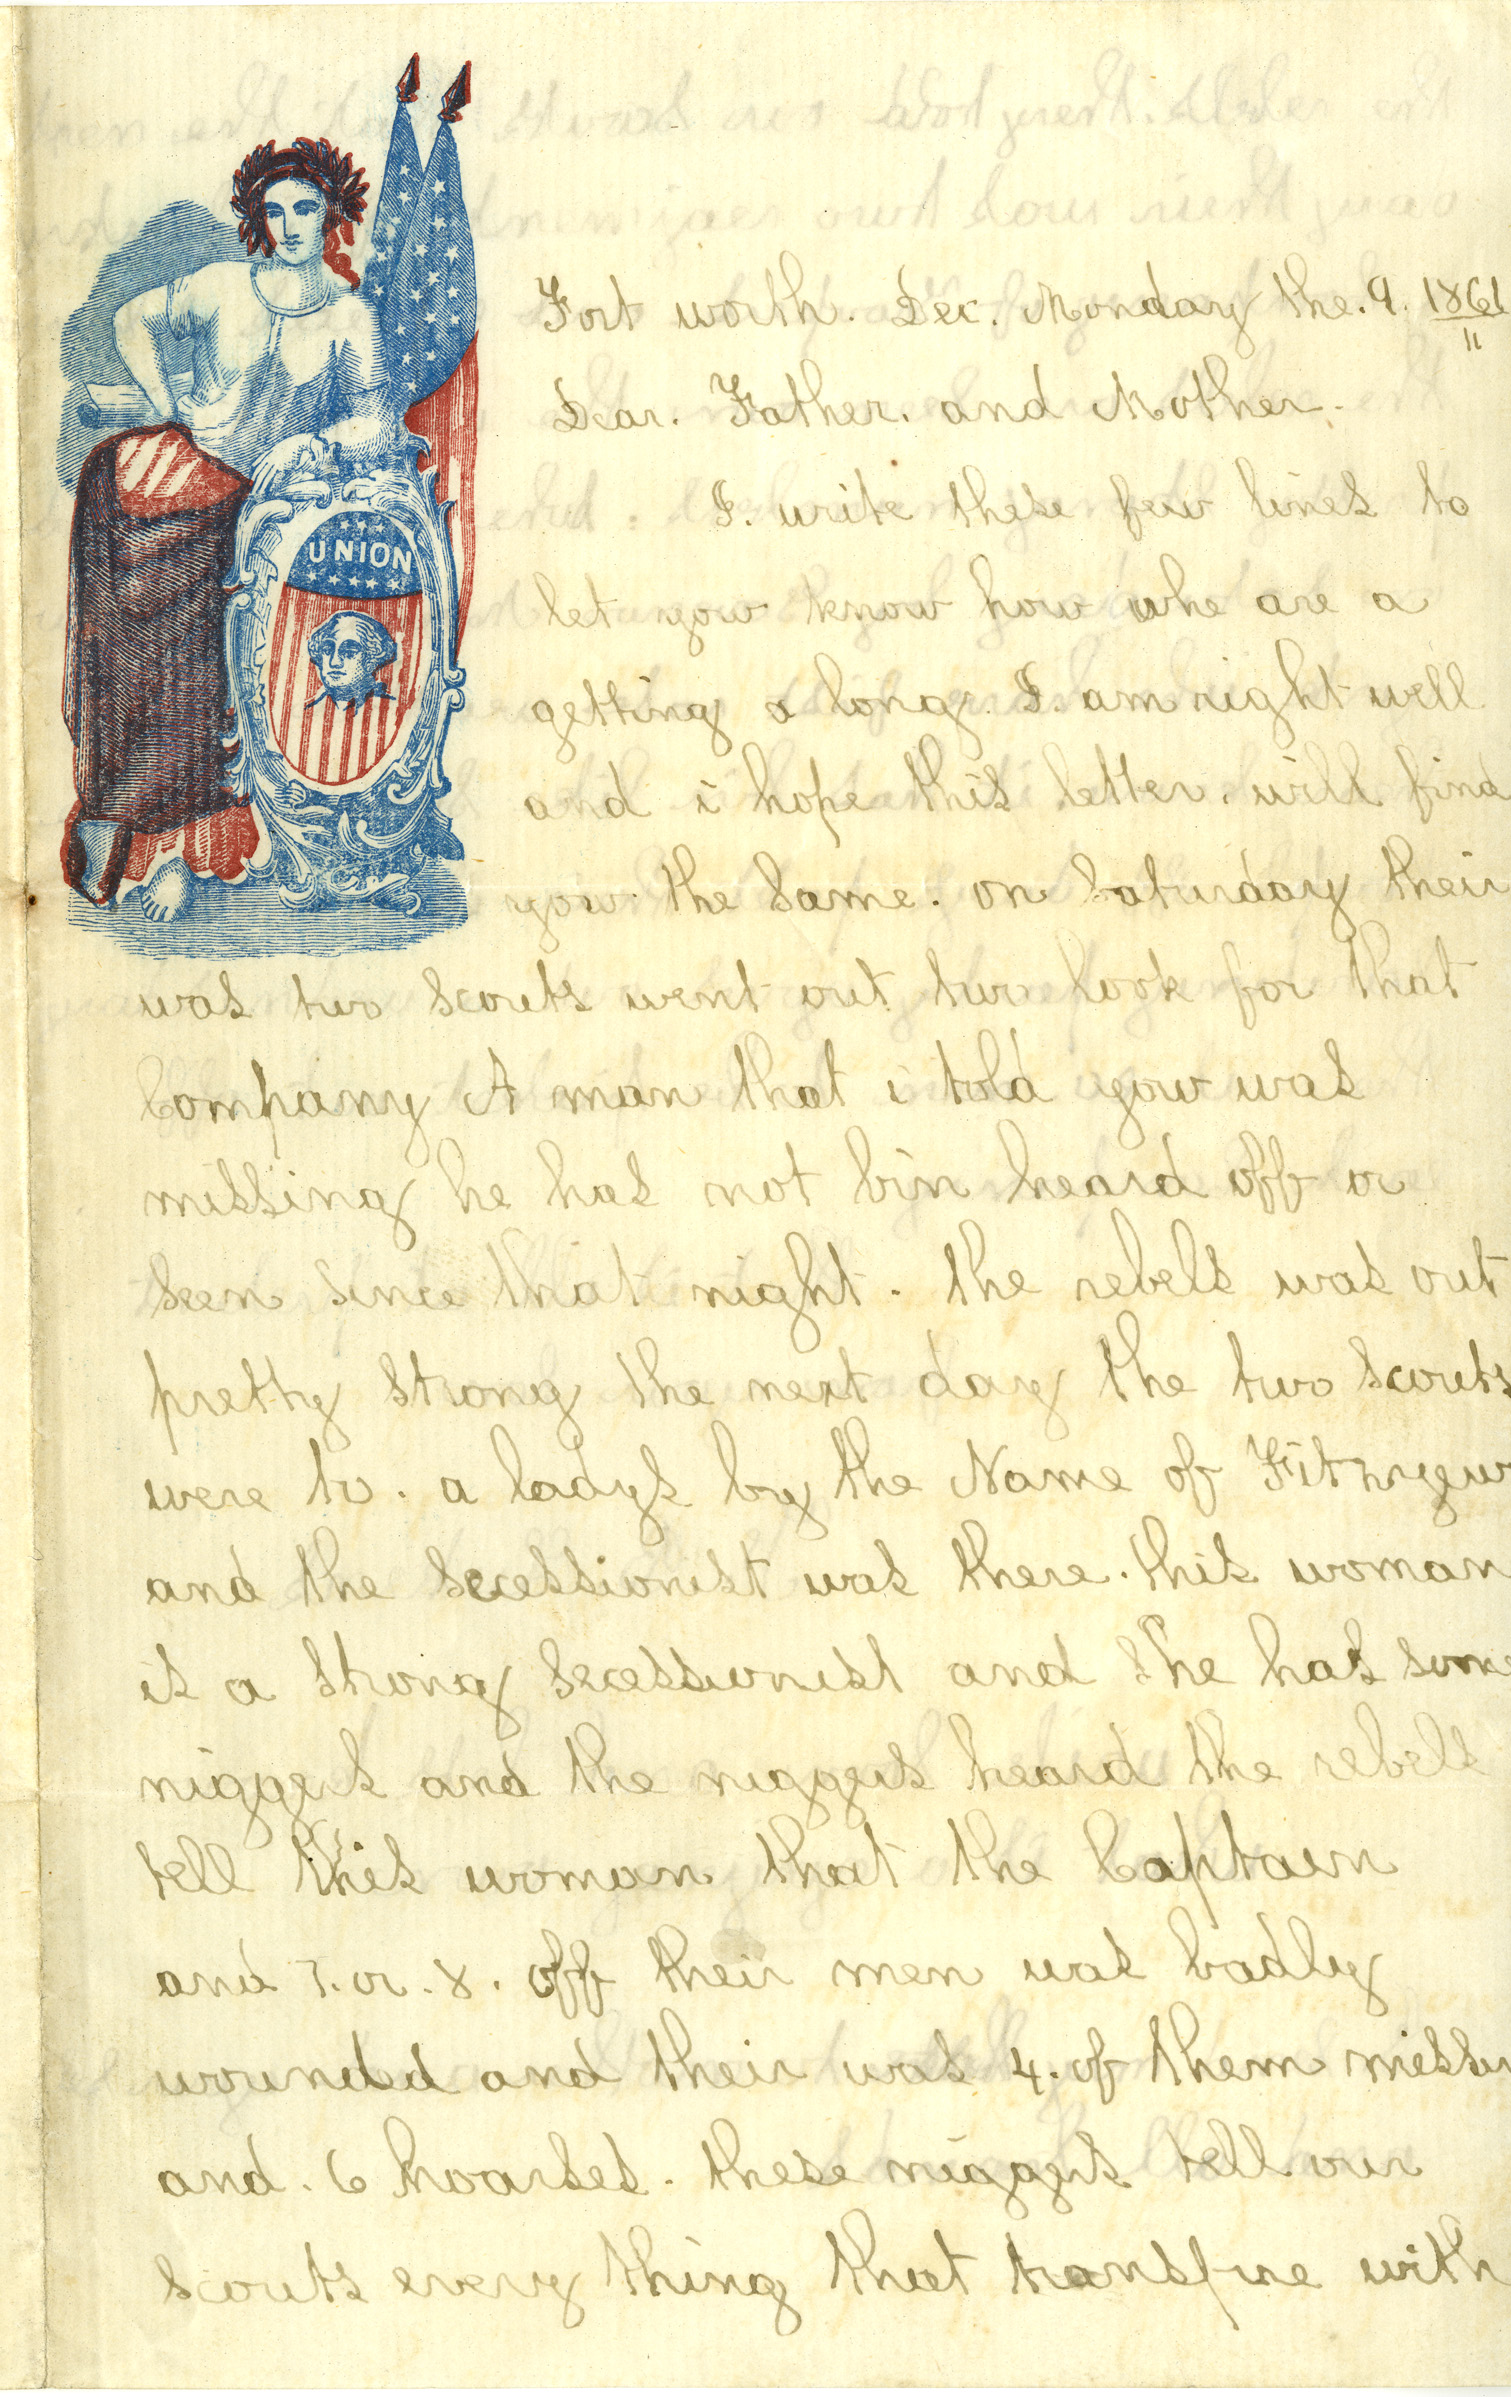 UNION
Fort worth. Dec. Monday the. 9. 1861
11
Dear. Father. and Mother.
I. write these few lines to
let yow know how whe are a
getting a long. I. am right well
and i hope this letter. will find
yow the same. on Saturday their
was two scouts went out two look for that
Company A man that i told yow was
missing he has not bin heard off or
seen since that night. the rebels was out
pretty strong the next day the two scouts
were to. a ladys by the Name of
and the secessionist was there. this woman
is a strong secessionist and She has some
niggers and the niggers heard the rebels
tell this woman that the Captain
and 7. or. 8. off their men was badly
wounded and their was 4. of them missin
and. 6 hoarses. these niggers tell our
scouts every thing that transfire with